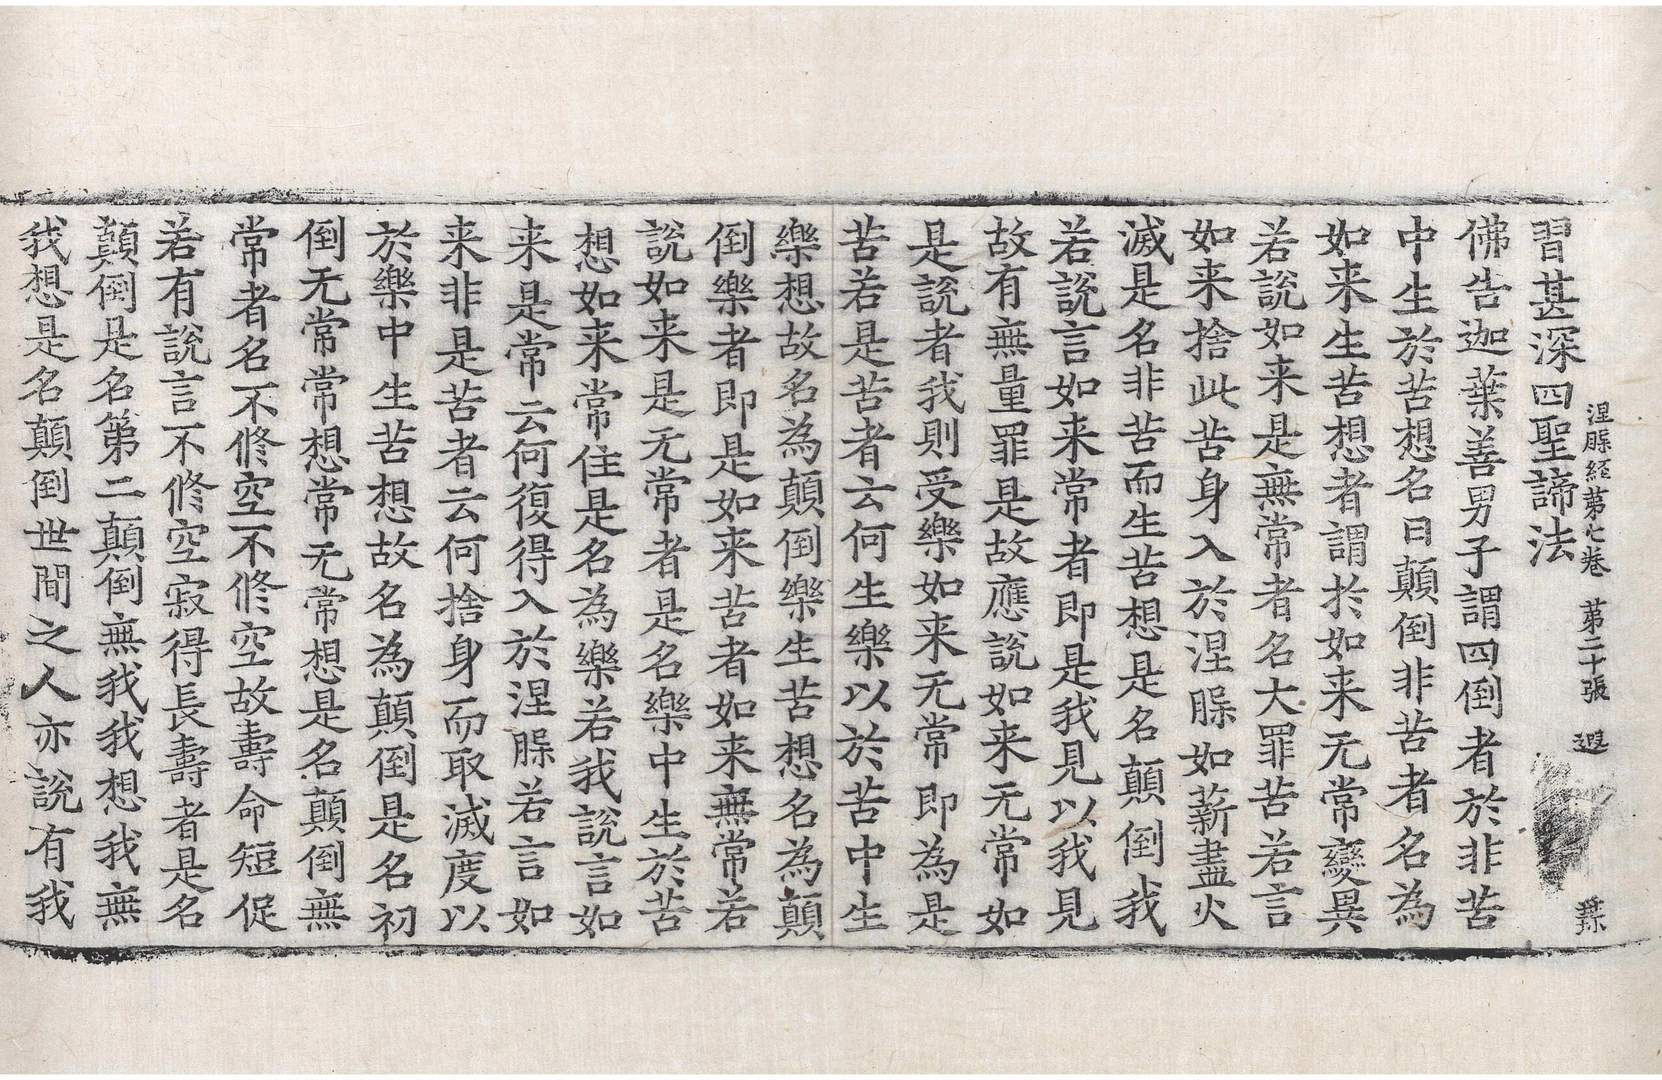 涅槃经第七卷　第二十張　遐　
習甚深四聖諦法
佛告迦葉善男子謂四倒者於非苦
中生於苦想名曰顛倒非苦者名為
如来生苦想者謂扵如来无常變異
若說如来是無常者名大罪苦若言
如来捨此苦身入於涅槃如薪盡火
滅是名非苦而生苦想是名顛倒我
若說言如来常者即是我見以我見
故有無量罪是故應說如来无常如
是說者我則受樂如来无常即為是
苦若是苦者云何生樂以於苦中生
樂想故名為顛倒樂生苦想名為顛
倒樂者即是如来苦者如来無常若
說如来是无常者是名樂中生於苦
想如来常住是名為樂若我說言如
来是常云何復得入於涅槃若言如
来非是苦者云何捨身而取滅度以
於樂中生苦想故名為顛倒是名初
倒无常常想常无常想是名顛倒無
常者名不修空不修空故壽命短促
若有說言不修空寂得長壽者是名
顛倒是名第二顛倒無我我想我無
我想是名顛倒世間之人亦說有我